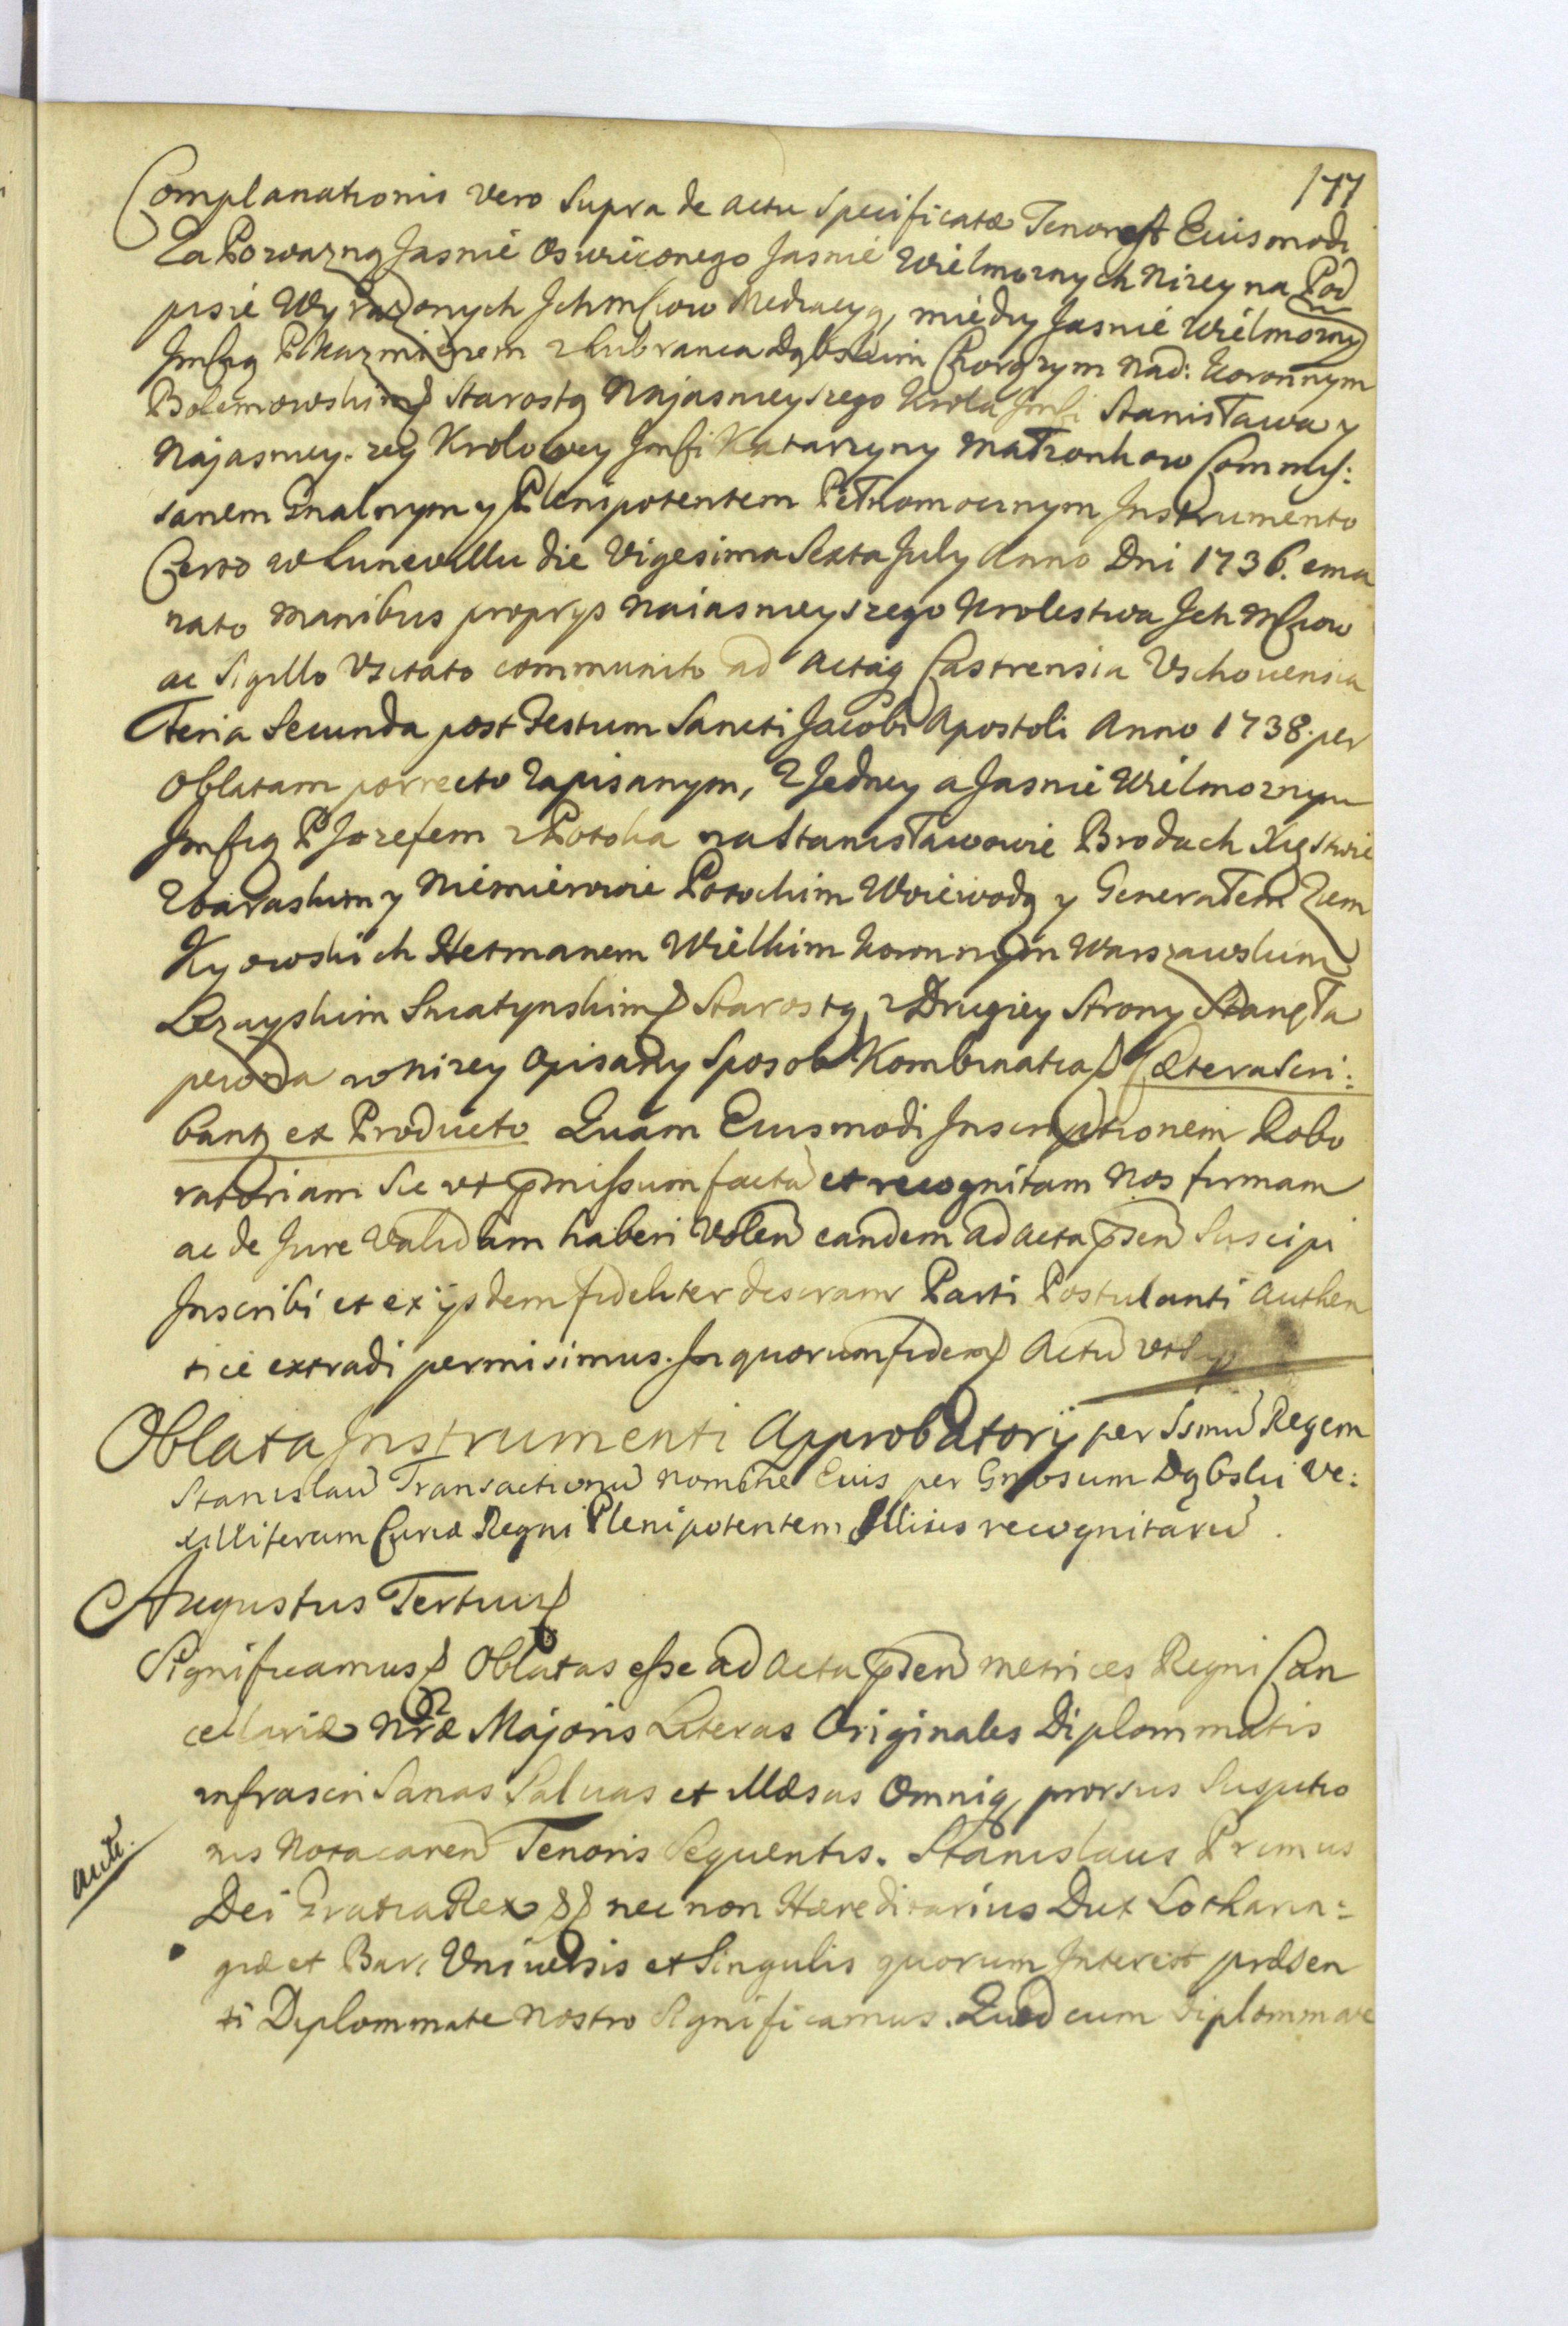 177
Complanationis vero Supra de actu Specificatæ Tenor est Eiusmodi
Za Powazną Jasnie Oswieconego Jasnie Wielmoznych nizey na Pod
pisie Wyrazonych Jchmściow Mediacyą, między Jasnie Wielmoznym
Jmścią P Kazmierzem z Lubranca Dąbskim Chorązym Nad: Koronnym
Bolemowskim Starostą Najasnieyszego Krola Jmści Stanisława y
Najasniey-szey Krolowey Jmści Katarzyny Małzonkow Commis:
sarzem Gnalnym y Plenipotentem Pełnomocnym Instrumento
Certo w Lunevillu die Vigesima Sexta July Anno Dni 1736. ema
nato Manibus proprys Naiasnieyszego Krolestwa Jch Mściow
ac Sigillo Usitato communito ad Actaq Castrensia Vschovensia
Feria Secunda post Festum Sancti Jacobi Apostoli Anno 1738. per
Oblatam porrecto zapisanym, z Jedney a Jasnie Wielmoznym
Jmścią P Jozefem z Potoka na Stanisławowie Brodach Xięstwie
Zbaraskim y Niemierowie Potockim Woiewodą y Generałem Ziem
Kyowskich Hetmanem Wielkim Koronnym Warszawskim
Lezayskim Sniatynskim Starostą, z Drugiey Strony Stanęła
pewna w nizey Opisany Sposob Kombinatia Cætera Scri:
bantz ex Producto Quam Eiusmodi Inscriptionem Robo
ratoriam Sic ut pmissum facta et recognitam Nos firmam
ac de Jure Validam haberi Volen eandem ad acta pten Suscipi
Inscribi et ex ijsdem fideliter descram Parti Postulanti Authen
tice extradi permisimus. In quorum fidem Actu
Oblata Instrumenti Approbatorij per Ssmu Regem
Stanislau Transactionu nomine Eius per Gnosum Dąbski Ve:
xilliferum Curiæ Regni Plenipotentem Illius recognitaru.
Augustus Tertius
Significamus Oblatas esse ad Acta pten Metrices Regni Can
cellariæ Nræ Majoris Literas Originales Diplommatis
infrascri Sanas Salvas et Illæsas Omniq prorsus Suspitio
nis Nota caren Tenoris Sequentis. Stanislaus Primus
aute.
Dei Gratia Rex nec non Hæreditarius Dux Lotharin:
giæ et Bari Universis et Singulis quorum Interest præsen
ti Diplommate Nostro Significamus. Quod cum Diplommate